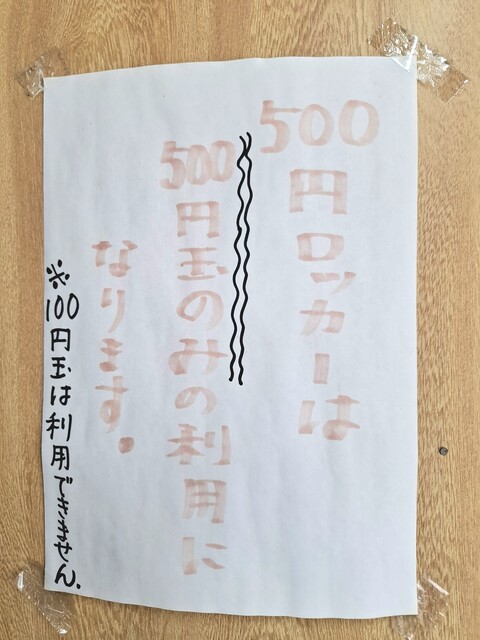 500円ロッカーは
500円玉のみの利用に
なります。
※100円玉は利用できません.